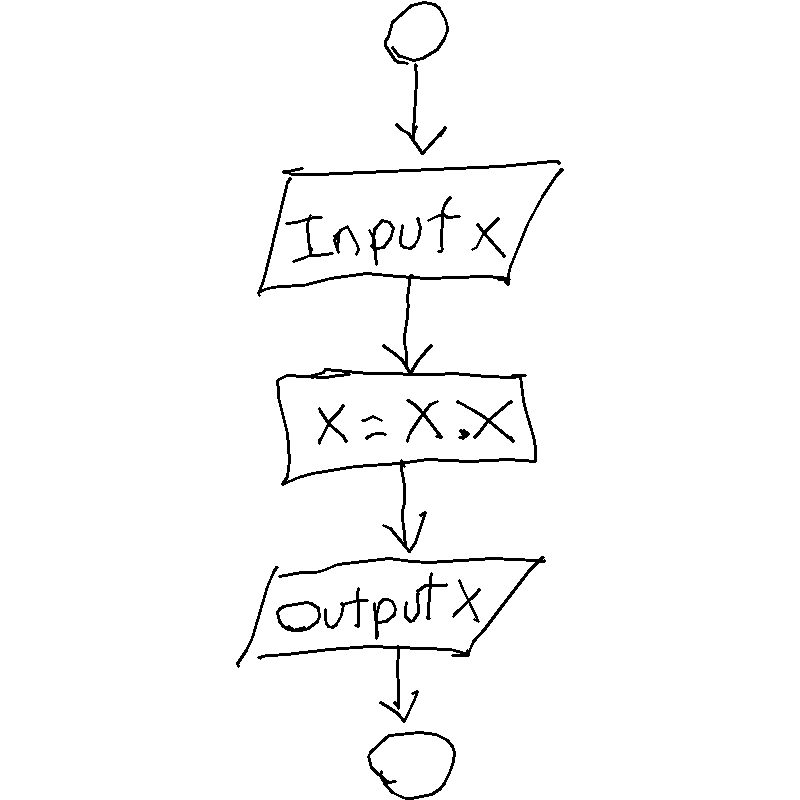 Input x
X = X . X
Output X